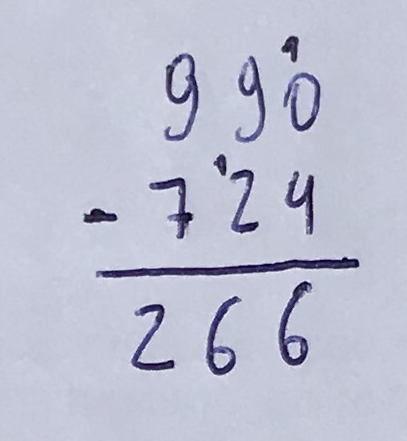 990
- 724
266